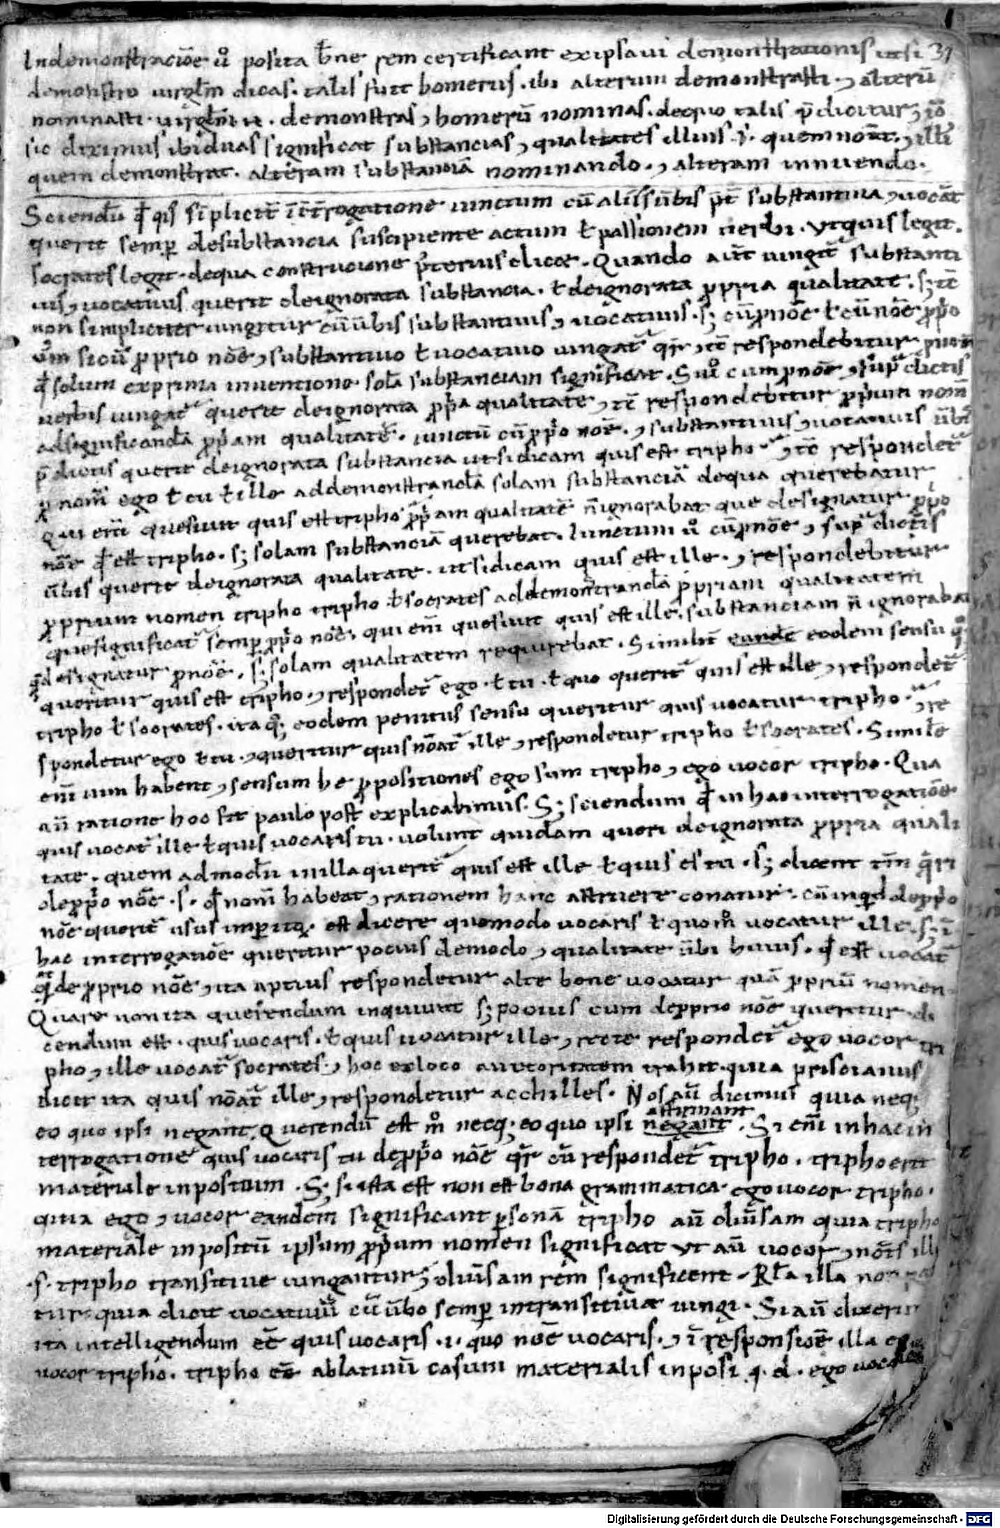 In demonstracioē u͛o posita bñe rem certificant ex ipsa ui demonstrationis ut si 31
demonstro uirgł̄m dicas. talis fuit homerus. ibi alterum demonstrasti ⁊ alterū
nominasti. uirgł̄m demonstras ⁊ homerū nominas. de quo talis p̄dicitur
sic diximus ibi duas significat substancias ⁊ qualitates illius .s. quem nōat ⁊ illi᷒
quem demonstrat. alteram substanciā nominando. ⁊ alteram innuendo.
Sciendū qd̄ qis simplicit̄ īt̄rogatione iunctum cū aliis ūbis p̄t substantiua ⁊ uocat̄
querit semp̄ de substancia suscipiente actum ł passionem uerbi. Ut quis legit.
socrates legit. de qua constructione p̄terius dic̄. Quando aūt iungit̄ substanti
uis ⁊ uocatiuis querit de ignorata substancia. ł de ignorata propria qualitate. s; t̄c
non simpliciter iungitur cū ūbis substantiuis ⁊ uocatiuis. s; cū p̄noē ł cū noē pp̄o
Nam si cū proprio noē ⁊ substantiuo ł uocatiuo iungat̄ qr̄ ⁊ t̄c respondebitur
qd̄ solum ex prima inuentione solā substanciam significat. Si u͛o cum p̄noē ⁊ sup̄dictis
uerbis iungat̄ querit de ignorata pp̄a qualitate ⁊ t̄c respondebitur pp̄ium nom̄
ad significandā pp̄am qualitatē. iunctū cū pp̄o noē. ⁊ substantiuis ⁊ uocatiuis ūbis
p̄dictis querit de ignorata substancia ut si dicam quis est tripho ⁊ t̄c respondet̄
p nom̄ ego ł tu ł ille ad demonstrandā solam substanciā de qua querebatur
Qui em̄ quesiuit quis est tripho pp̄am qualitatē n̄ ignorabat que designatur pp̄o
noē qd̄ est tripho. s; solam substanciā querebat. Iunctum u͛o cū p̄noē ⁊ sup̄dictis
ūbis querit de ignorata qualitate. ut si dicam quis est ille. ⁊ respondebitur
proprium nomen tripho ł socrates ad demonstrandā propriam qualitatem
que significat̄ semp̄ pp̄o noē. qui em̄ quesiuit quis est ille. substanciam n̄ ignorabat
designatur p̄noē. s; solam qualitatem requirebat. Similit̄ eodem sensu
queritur quis est tripho. ⁊ respondet̄ ego. ł tu. ł quo querit̄ quis est ille ⁊ respondet̄
tripho ł socrates. ita q; eodem penitus sensu queritur quis uocatur tripho. ⁊ re
spondetur ego ł tu. ⁊ queritur quis nōat̄ ille ⁊ respondetur tripho ł socrates. Simile
em̄ uim habent ⁊ sensum he p̄positiones ego sum tripho ⁊ ego uocor tripho. Qua
aū ratione hoc sit paulo post explicabimus. S; sciendum qd̄ in hac interrogatioē
quis uocat̄ ille ł quis uocaris tu. uolunt quidam queri de ignorata propria quali
tate. quem admodū in illa querit̄ quis est ille ł quis es tu. s; dicent tm̄ qr̄i
de pp̄o noē .s. qd̄ nom̄ habeat ⁊ rationem hanc astruere conatur.
noē querit̄ usus imp̄itq;. est dicere quomodo uocaris ł quom̊ uocatur ille. s; ī
hac interrogatioē queritur pocius de modo ⁊ qualitate ūbi huius. qd̄ est uocat̄
q̄ de proprio noē ⁊ ita aptius respondetur alte bene uocatur quā propriū nomen.
Quare non ita querendum inquiunt s; pocius cum de pprio noē queritur di
cendum est. quis uocaris. ł quis uocatur ille ⁊ recte respondet̄ ego uocor tri
pho ⁊ ille uocat̄ socrates. ⁊ hoc ex loco auctoritatem trahit. quia priscianus
dicit ita quis nōat̄ ille ⁊ respondetur acchilles. Nos aū dicimus quia neq;
eo quo ipsi negant. Querendū est m̊ neq; eo quo ipsi affirmant negant. Si em̄ in hac in
terrogatione quis uocaris tu de pp̄o noē qr̄ cū respondet̄ tripho. tripho erit
materiale inpositum. S; si ista est non est bona grammatica. ego uocor tripho.
quia ego ⁊ uocor eandem significant p̄sonā tripho aū diu͛sam quia tripho
materiale inpositū ipsum pp̄ium nomen significat Ut aū uocor ⁊ nōis ill̄
.s. tripho transitiue iungantur ⁊ diu͛sam rem significent. Rł̄a illa
tur. quia dicit uocatiuū cū ūbo semp̄ intransitiuat̄ iungi. Si aū dixerim
ita intelligendum eē quis uocaris .i. quo noē uocaris. ⁊ ī responsioē illa
uocor tripho. tripho eē ablatiuū casum materialis inposi q. d. ego uocor
Digitalisierung gefördert durch die Deutsche Forschungsgemeinschaft - DFG